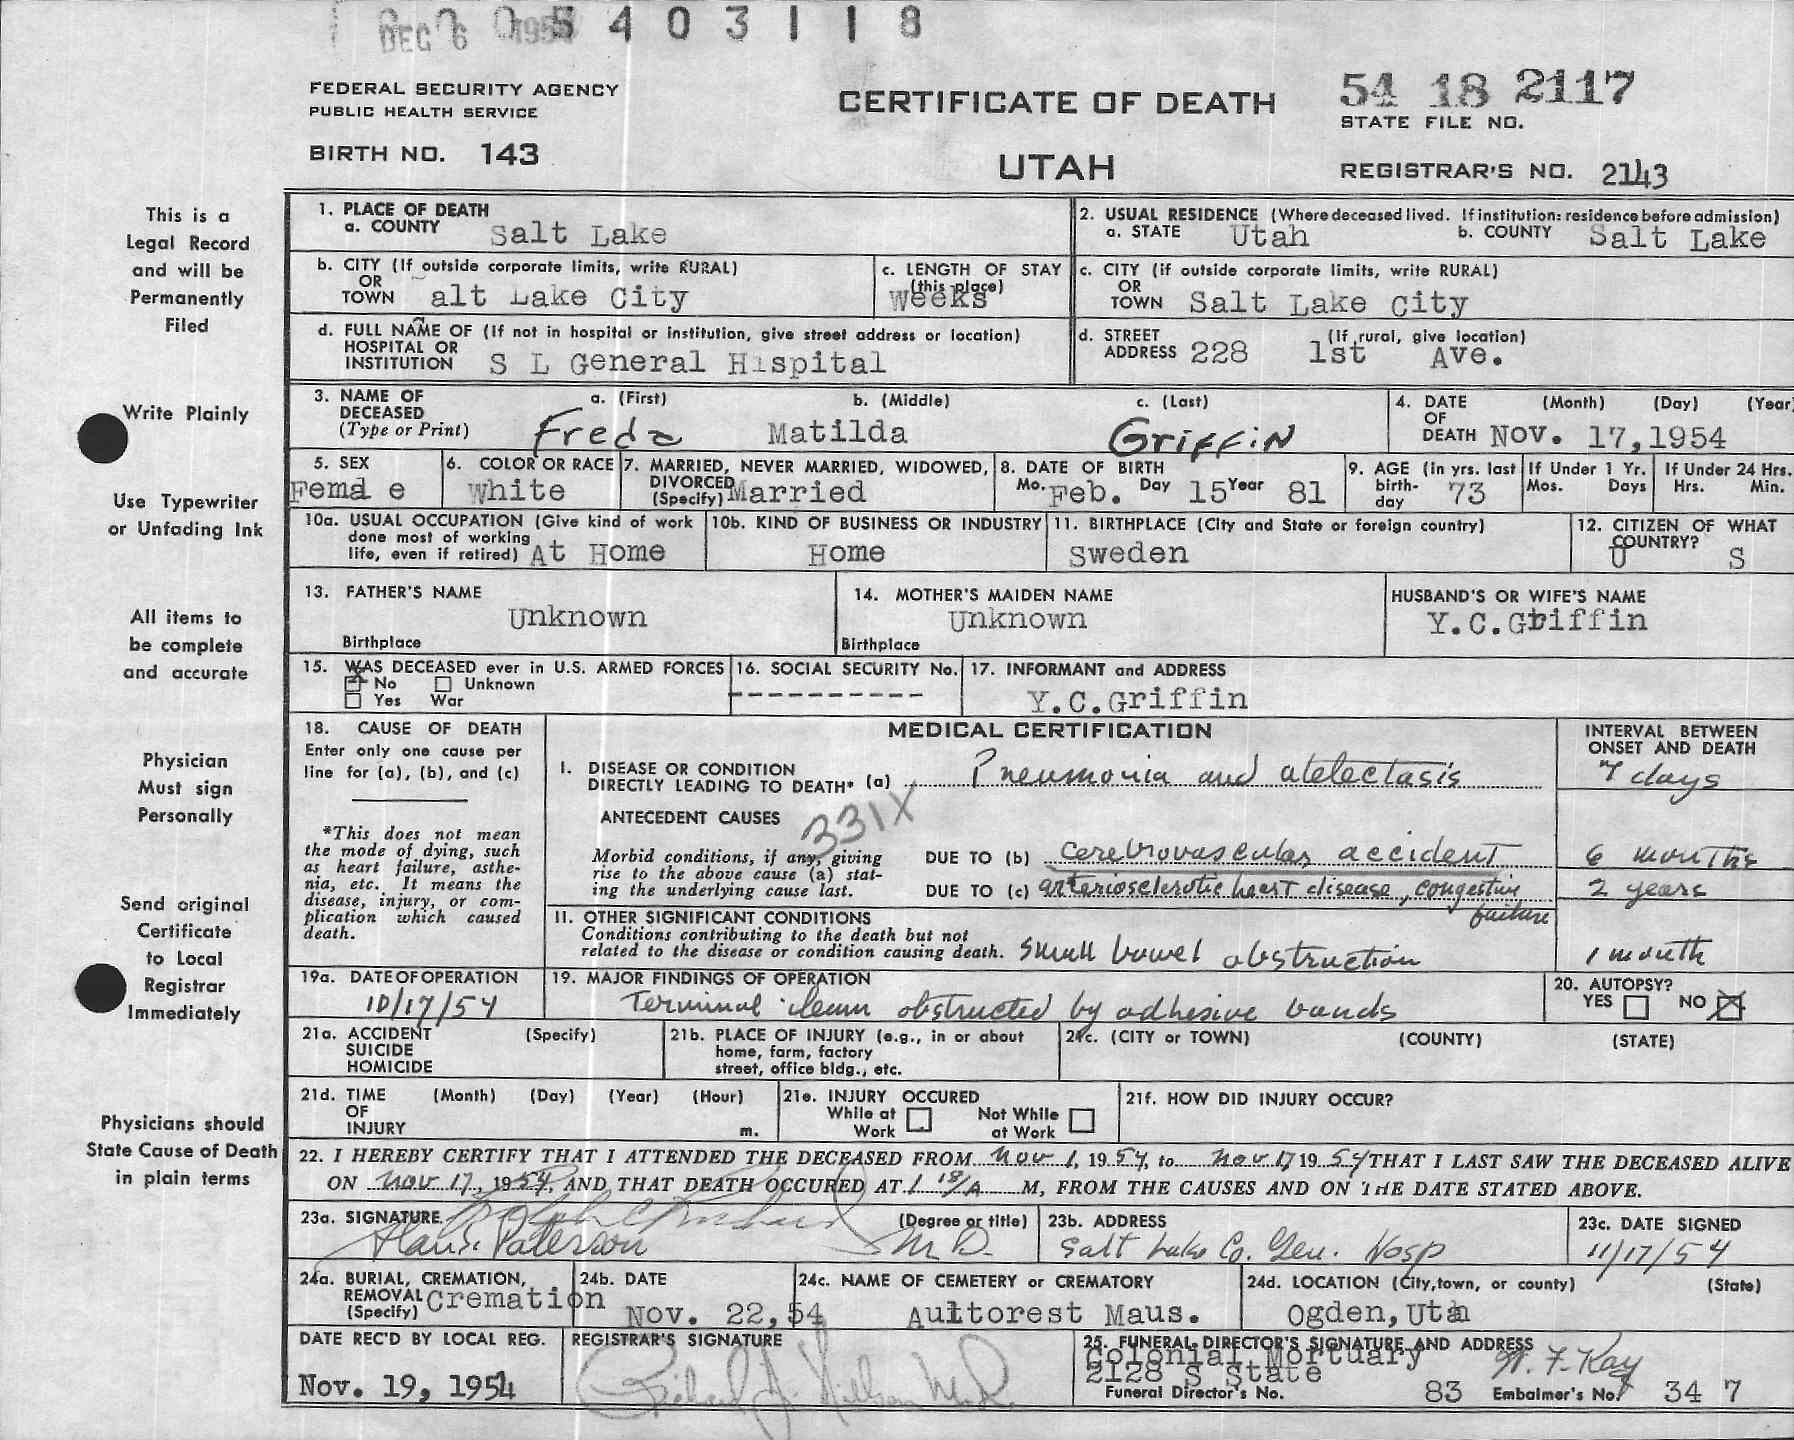 DEC 6 1954 5 4 0 3 1 1 8
FEDERAL SECURITY AGENCY
PUBLIC HEALTH SERVICE
BIRTH NO. 143
CERTIFICATE OF DEATH
UTAH
54 18 2117
STATE FILE NO.
REGISTRAR'S NO. 2143
This is a
Legal Record
and will be
Permanently
Filed
Write Plainly
Use Typewriter
or Unfading Ink
All items to
be complete
and accurate
Physician
Must sign
Personally
Send original
Certificate
to Local
Registrar
Immediately
Physicians should
State Cause of Death
in plain terms
1. PLACE OF DEATH
a. COUNTY Salt Lake
2. USUAL RESIDENCE (Where deceased lived. If institution: residence before admission)
a. STATE Utah b. COUNTY Salt Lake
b. CITY (If outside corporate limits, write RURAL)
OR
TOWN alt Lake City
c. LENGTH OF STAY
(this place)
weeks
c. CITY (if outside corporate limits, write RURAL)
OR
TOWN Salt Lake City
d. FULL NAME OF (If not in hospital or institution, give street address or location)
HOSPITAL OR
INSTITUTION S L General Hispital
d. STREET (If rural, give location)
ADDRESS 228 1st Ave.
3. NAME OF a. (First) b. (Middle) c. (Last)
DECEASED
(Type or Print) Freda Matilda Griffin
4. DATE (Month) (Day) (Year)
OF
DEATH Nov. 17,1954
5. SEX
Fema e
6. COLOR OR RACE
White
7. MARRIED, NEVER MARRIED, WIDOWED,
DIVORCED
(Specify) Married
8. DATE OF BIRTH
Mo. Feb. Day 15 Year 81
9. AGE (in yrs. last
birth-
day 73
If Under 1 Yr.
Mos. Days
If Under 24 Hrs.
Hrs. Min.
10a. USUAL OCCUPATION (Give kind of work
done most of working
life, even if retired) At Home
10b. KIND OF BUSINESS OR INDUSTRY
Home
11. BIRTHPLACE (City and State or foreign country)
Sweden
12. CITIZEN OF WHAT
COUNTRY?
U S
13. FATHER'S NAME
Unknown
Birthplace
14. MOTHER'S MAIDEN NAME
Unknown
Birthplace
HUSBAND'S OR WIFE'S NAME
Y.C.Griffin
15. WAS DECEASED ever in U.S. ARMED FORCES
No Unknown
Yes War
16. SOCIAL SECURITY No.
----------
17. INFORMANT and ADDRESS
Y.C.Griffin
18. CAUSE OF DEATH
Enter only one cause per
line for (a), (b), and (c)
*This does not mean
the mode of dying, such
as heart failure, asthe-
nia, etc. It means the
disease, injury, or com-
plication which caused
death.
MEDICAL CERTIFICATION
INTERVAL BETWEEN
ONSET AND DEATH
I. DISEASE OR CONDITION
DIRECTLY LEADING TO DEATH* (a) Pneumonia and atelectasis 7 days
ANTECEDENT CAUSES
331X
Morbid conditions, if any, giving
rise to the above cause (a) stat-
ing the underlying cause last.
DUE TO (b) cerebrovascular accident 6 months
DUE TO (c) arteriosclerotic heart disease, congestive 2 years
failure
II. OTHER SIGNIFICANT CONDITIONS
Conditions contributing to the death but not
related to the disease or condition causing death. Small bowel obstruction 1 month
19a. DATE OF OPERATION
10/17/54
19. MAJOR FINDINGS OF OPERATION
Terminal ileum obstructed by adhesive bands
20. AUTOPSY?
YES NO
21a. ACCIDENT (Specify)
SUICIDE
HOMICIDE
21b. PLACE OF INJURY (e.g., in or about
home, farm, factory
street, office bldg., etc.
21c. (CITY or TOWN) (COUNTY) (STATE)
21d. TIME (Month) (Day) (Year) (Hour)
OF
INJURY m.
21e. INJURY OCCURED
While at Not While
Work at Work
21f. HOW DID INJURY OCCUR?
22. I HEREBY CERTIFY THAT I ATTENDED THE DECEASED FROM Nov 1, 1954, to Nov 17, 1954 THAT I LAST SAW THE DECEASED ALIVE
ON Nov 17, 1954, AND THAT DEATH OCCURED AT 1 18/A M, FROM THE CAUSES AND ON THE DATE STATED ABOVE.
23a. SIGNATURE (Degree or title)
Paterson M.D.
23b. ADDRESS
Salt Lake Co. Gen. Hosp
23c. DATE SIGNED
11/17/54
24a. BURIAL, CREMATION,
REMOVAL
(Specify) Cremation
24b. DATE
Nov. 22,54
24c. NAME OF CEMETERY or CREMATORY
Aultorest Maus.
24d. LOCATION (City,town, or county) (State)
Ogden,Utah
DATE REC'D BY LOCAL REG.
Nov. 19, 1954
REGISTRAR'S SIGNATURE
25. FUNERAL DIRECTOR'S SIGNATURE AND ADDRESS
Colonial Mortuary W. F. Kay
2128 S State
Funeral Director's No. 83 Embalmer's No. 34 7